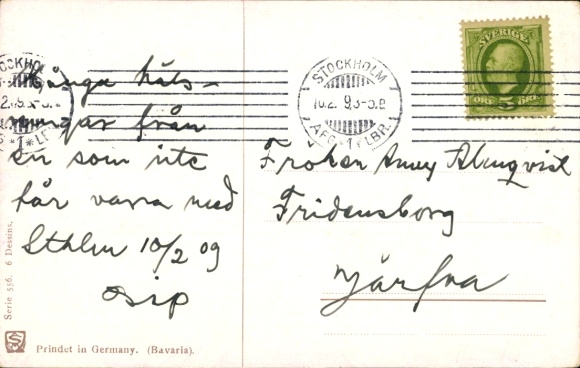 Många häls-
ningar från
en som inte
får vara med
Sthlm 10/2 09
STOCKHOLM
10.2. 9.3-5.E
AFG. 1 LBR.
SVERIGE
ÖRE 5 ÖRE
Fröken Anny Almqvist
Fridensborg
Järfva
Serie 536. 6 Dessins.
Prindet in Germany. (Bavaria).